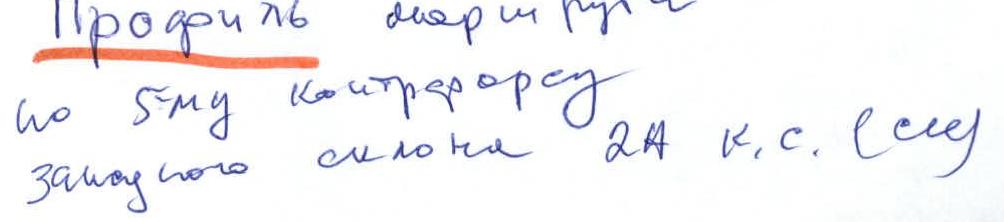 Профиль маршрута
по 5-му контрфорсу
западного склона 2А к.с. (сл)